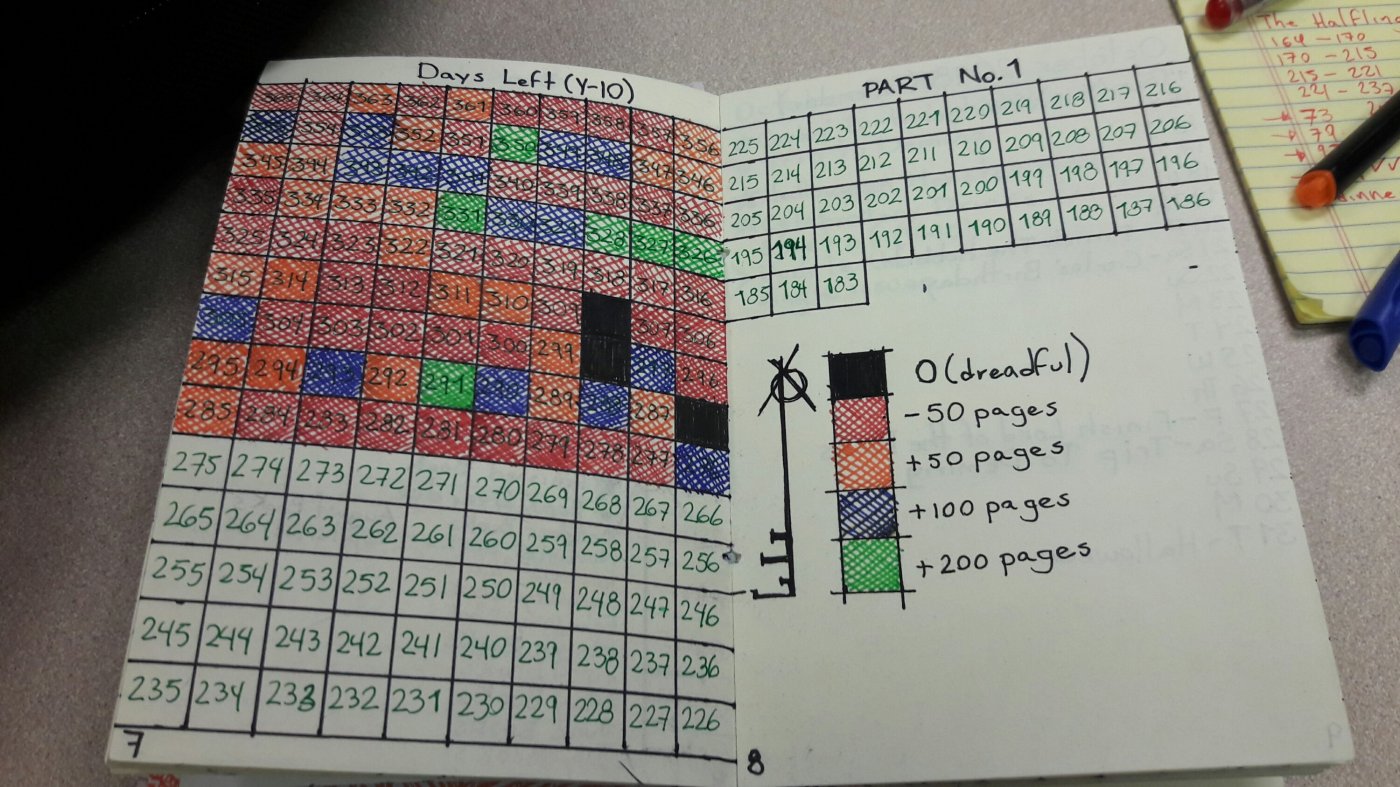 Days Left (Y-10)
363 362 361 360 359 358 357 356
354 352 351 350 349 348 347 346
345 344 341 340 339 338 337 336
335 334 333 332 331 330 329 328 327 326
325 324 323 322 321 320 319 318 317 316
315 314 313 312 311 310 309 307 306
304 303 302 301 300 299 296
295 294 292 291 289 287
285 284 283 282 281 280 279 278 277
275 274 273 272 271 270 269 268 267 266
265 264 263 262 261 260 259 258 257 256
255 254 253 252 251 250 249 248 247 246
245 244 243 242 241 240 239 238 237 236
235 234 233 232 231 230 229 228 227 226
7
PART No.1
225 224 223 222 221 220 219 218 217 216
215 214 213 212 211 210 209 208 207 206
205 204 203 202 201 200 199 198 197 196
195 194 193 192 191 190 189 188 187 186
185 184 183
0 (dreadful)
-50 pages
+50 pages
+100 pages
+200 pages
8
The Halfling
164-170
170-215
215-221
221-237
73
79